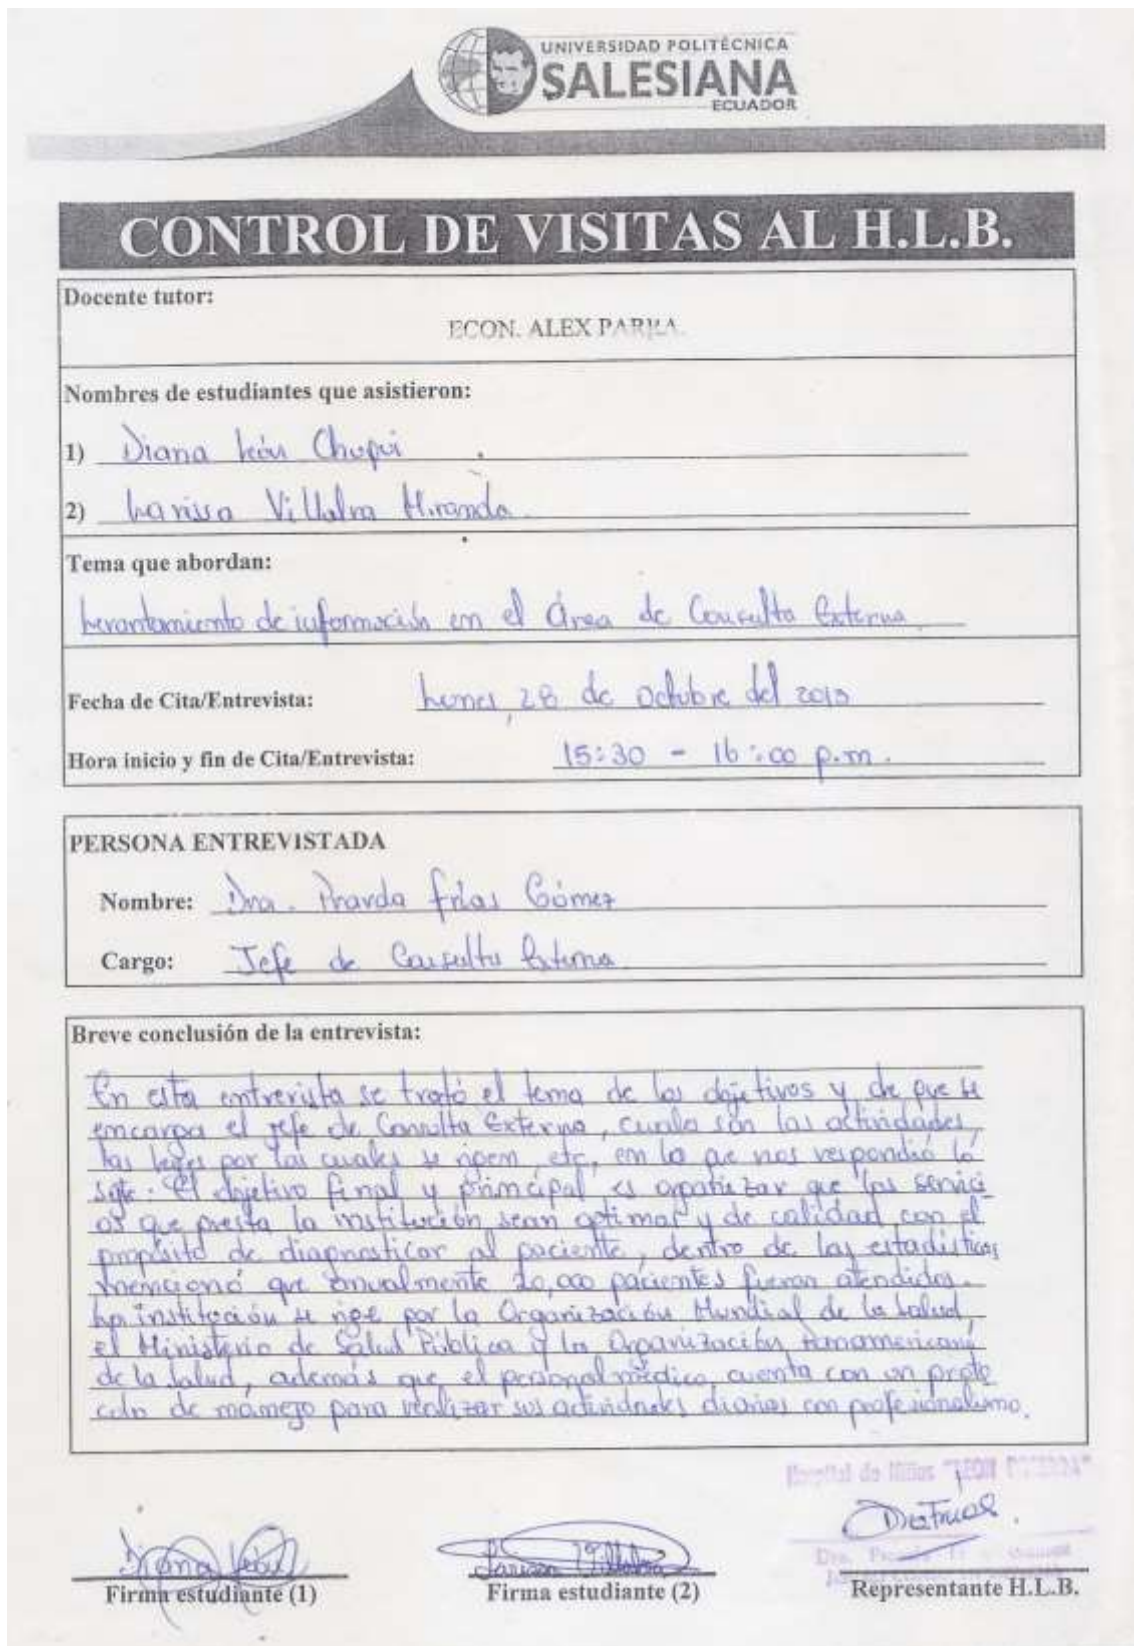 UNIVERSIDAD POLITÉCNICA
SALESIANA
ECUADOR
CONTROL DE VISITAS AL H.L.B.
Docente tutor:
ECON. ALEX PARRA.
Nombres de estudiantes que asistieron:
1) Diana León Chupi
2) Larissa Villalva Miranda
Tema que abordan:
Levantamiento de información en el Área de Consulta Externa
Fecha de Cita/Entrevista: Lunes, 28 de Octubre del 2013
Hora inicio y fin de Cita/Entrevista: 15:30 - 16:00 p.m.
PERSONA ENTREVISTADA
Nombre: Dra. Pravda Frías Gómez
Cargo: Jefe de Consulta Externa
Breve conclusión de la entrevista:
En esta entrevista se trató el tema de los objetivos y de que se
encarga el jefe de Consulta Externa, cuales son las actividades,
las leyes por las cuales se rigen, etc, en lo que nos respondió lo
sgte. El objetivo final y principal es que los servici-
os que presta la institución sean optimos y de calidad con el
propósito de diagnosticar al paciente, dentro de las estadísticas
mencionó que anualmente 20,000 pacientes fueron atendidos.
La institución se rige por la Organización Mundial de la Salud,
el Ministerio de Salud Pública y la Organización Panamericana
de la Salud, además que el personal médico cuenta con un proto
colo de manejo para realizar sus actividades diarias con profesionalismo.
Hospital de Niños "LEON BECERRA"
Dra Frías.
Diana León
Larissa Villalva
Firma estudiante (1)
Firma estudiante (2)
Representante H.L.B.